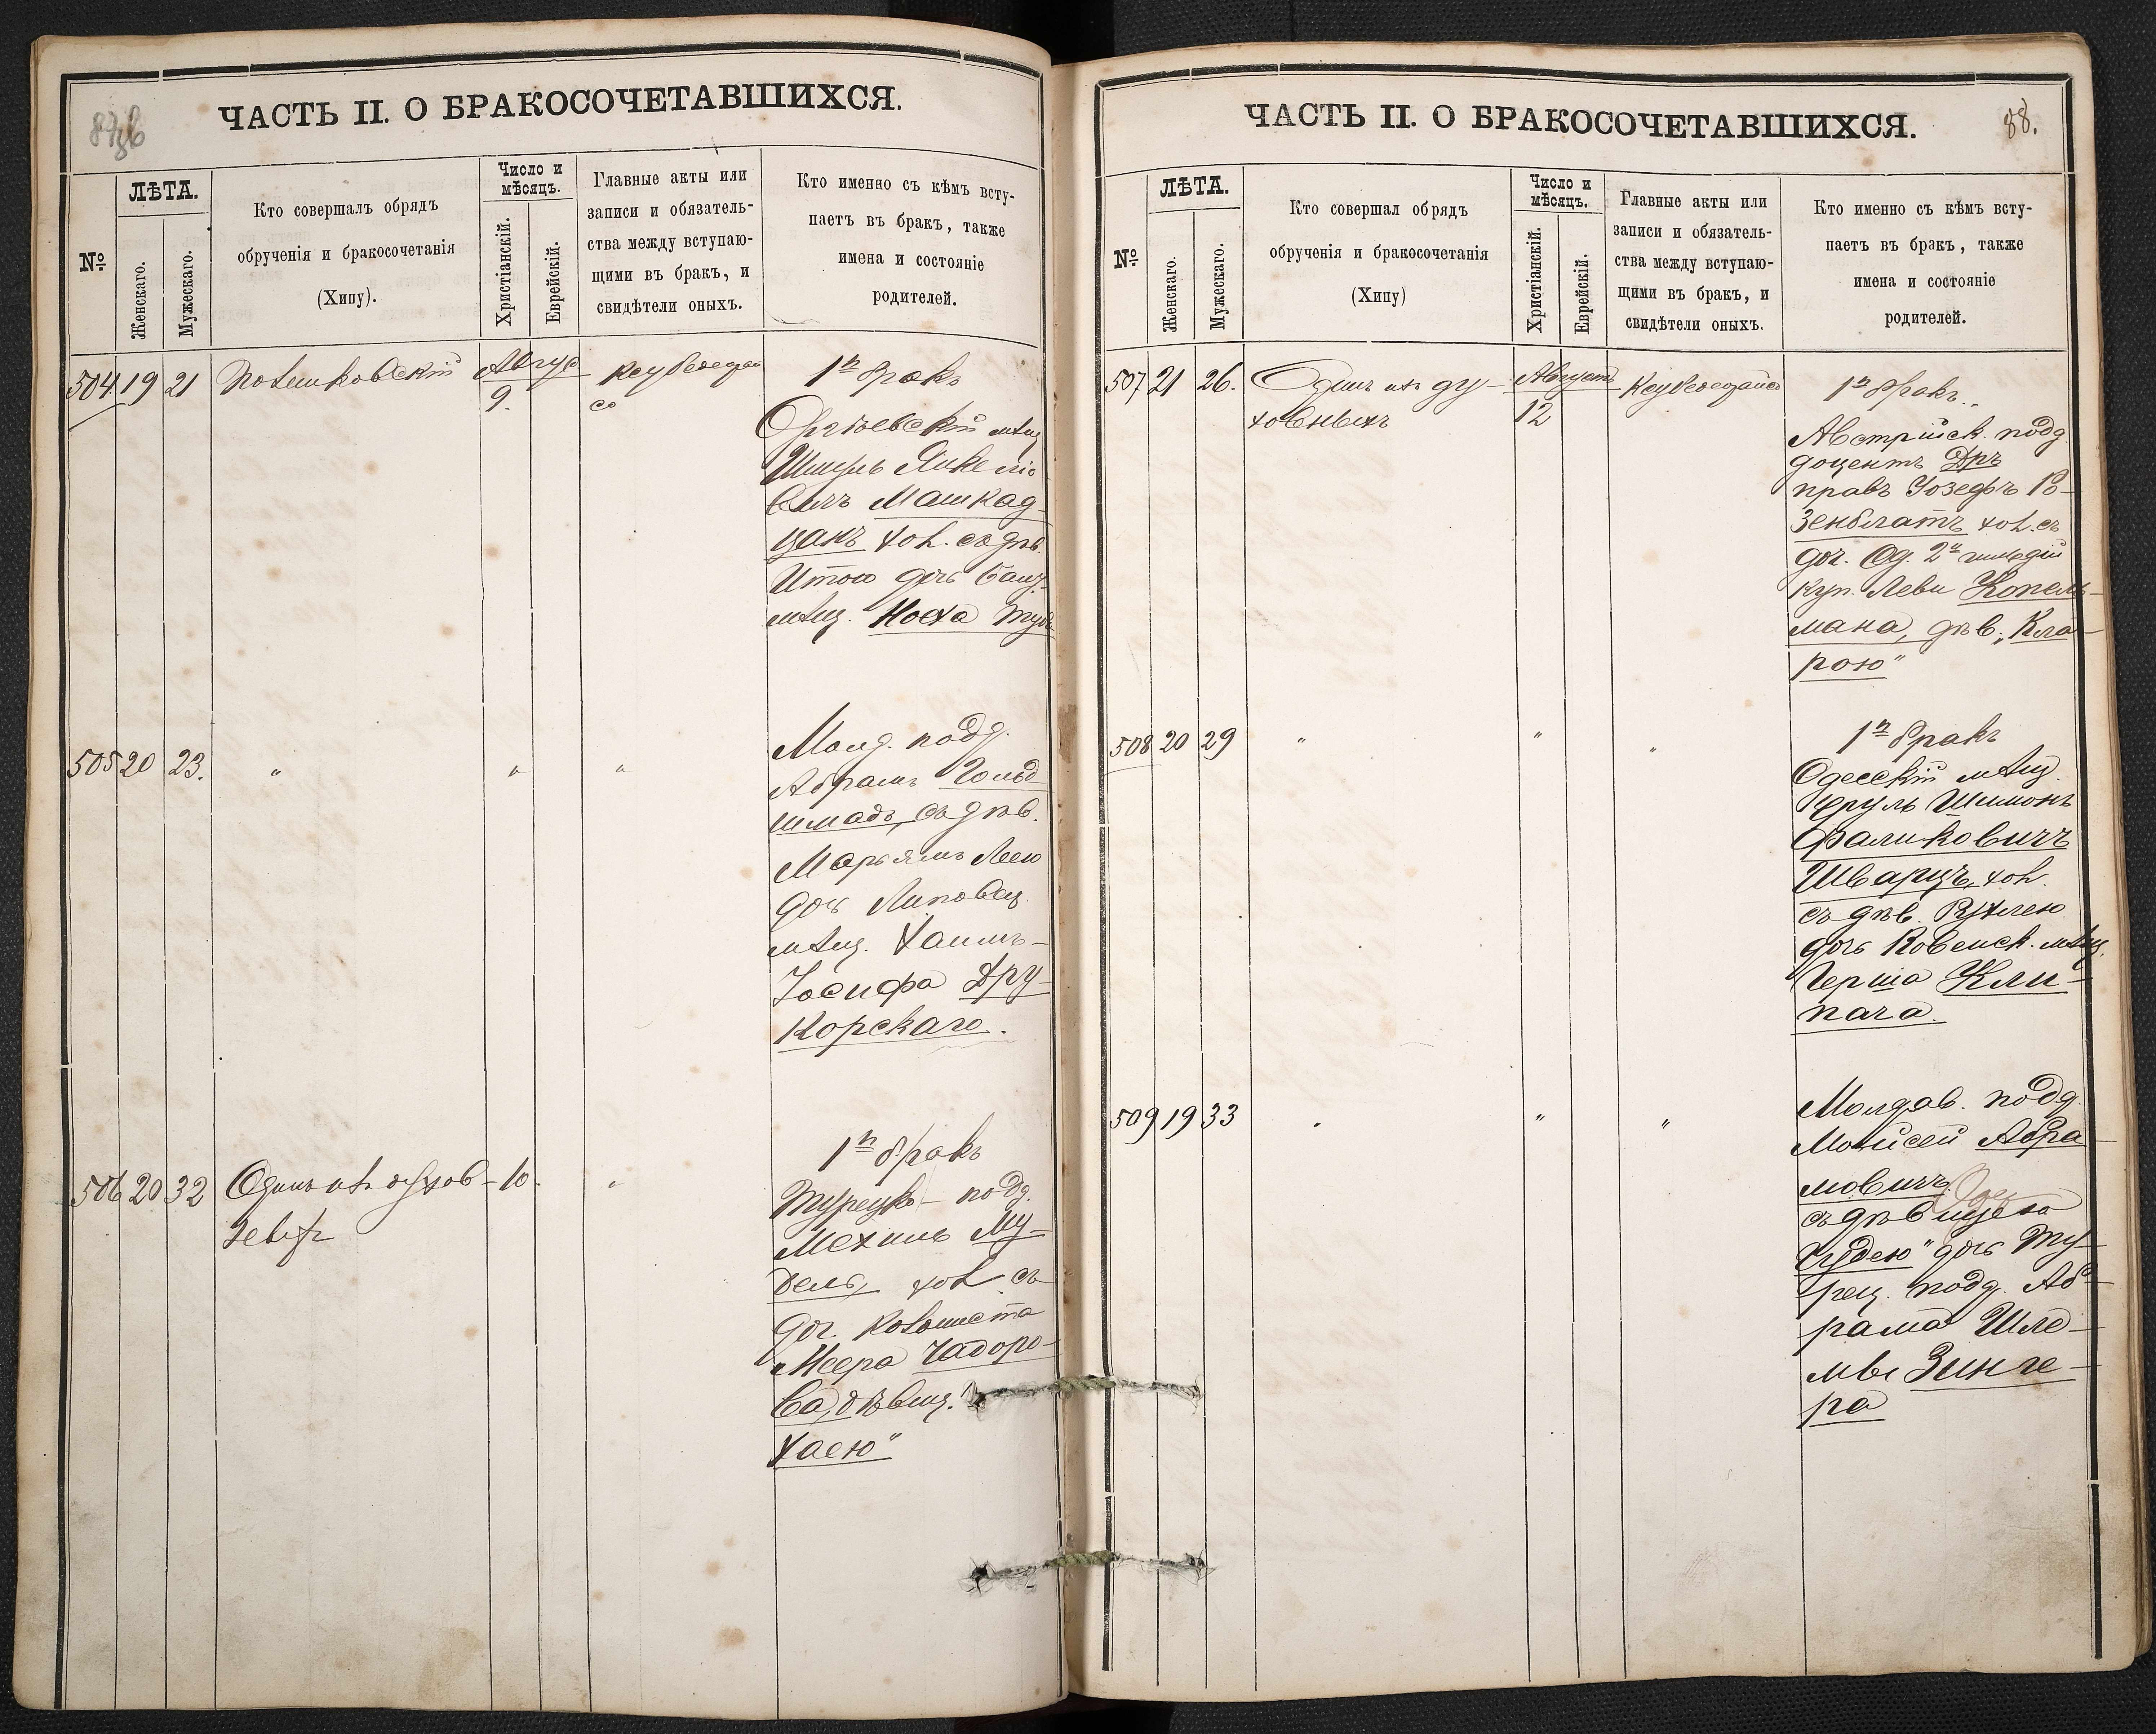 ЧАСТЬ II. О БРАКОСОЧЕТАВШИХСЯ.
№
ЛѢТА.
Женскаго.
Мужескаго.
Кто совершалъ обрядъ
обрученія и бракосочетанія
(Хипу).
Число и
мѣсяцъ.
Христіанскій.
Еврейскій.
Главные акты или
записи и обязатель-
ства между вступаю-
щими въ бракъ, и
свидѣтели оныхъ.
Кто именно съ кѣмъ всту-
паетъ въ бракъ, также
имена и состояніе
родителей.
504 19 21
Август
9.
1й бракъ
Оргѣевскій мѣщ
Шмуль Янкеліо
вичъ Машкад
цанъ хол. съ дѣв.
Итою дочь
мѣщ. Носха
505 20 23. " " "
Молд. подд.
Абрамъ Гольд
шмадъ, съ дѣв.
Марьямъ Леею
дочь Липовец.
мѣщ. Хаимъ-
Іосифа Дру-
корскаго.
506 20 32 Одинъ изъ духов- 10. "
ныхъ
1й бракъ
Турецк- подд.
Мехиль Му-
дель, хол. съ
доч. колониста
Меера Чадоро-
ва, дѣвиц. "
Хаею"
ЧАСТЬ II. О БРАКОСОЧЕТАВШИХСЯ.
88.
№
ЛѢТА.
Женскаго.
Мужескаго.
Кто совершал обрядъ
обрученія и бракосочетанія
(Хипу)
Число и
мѣсяцъ.
Христіанскій.
Еврейскій.
Главные акты или
записи и обязатель-
ства между вступаю-
щими въ бракъ, и
свидѣтели оныхъ.
Кто именно съ кѣмъ всту-
паетъ въ бракъ, также
имена и состояніе
родителей.
507 21 26. Одинъ изъ ду-
ховныхъ
Августъ
12
1й бракъ.
Австрійск. подд
доцентъ Дръ
правъ Іозефъ Ро-
зенблатъ хол. съ
доч. Од. 2й гильдій
куп. Леви Копель-
мана, дѣв. "Кла-
рою"
508 20 29 " " "
1й бракъ
Одесскій мѣщ.
Сруль Шимонъ
Фаликовичъ
Шварцъ, хол.
съ дѣв. Рухлею
дочь Ковенск. мѣщ.
Герша Кли-
пача.
509 19 33 " " "
Молдав. подд.
Мойсей Абра
мовичъ
съ дѣвицею
дочь Ту-
рец. подд. Аб-
рама Шле-
мы Зинге-
ра